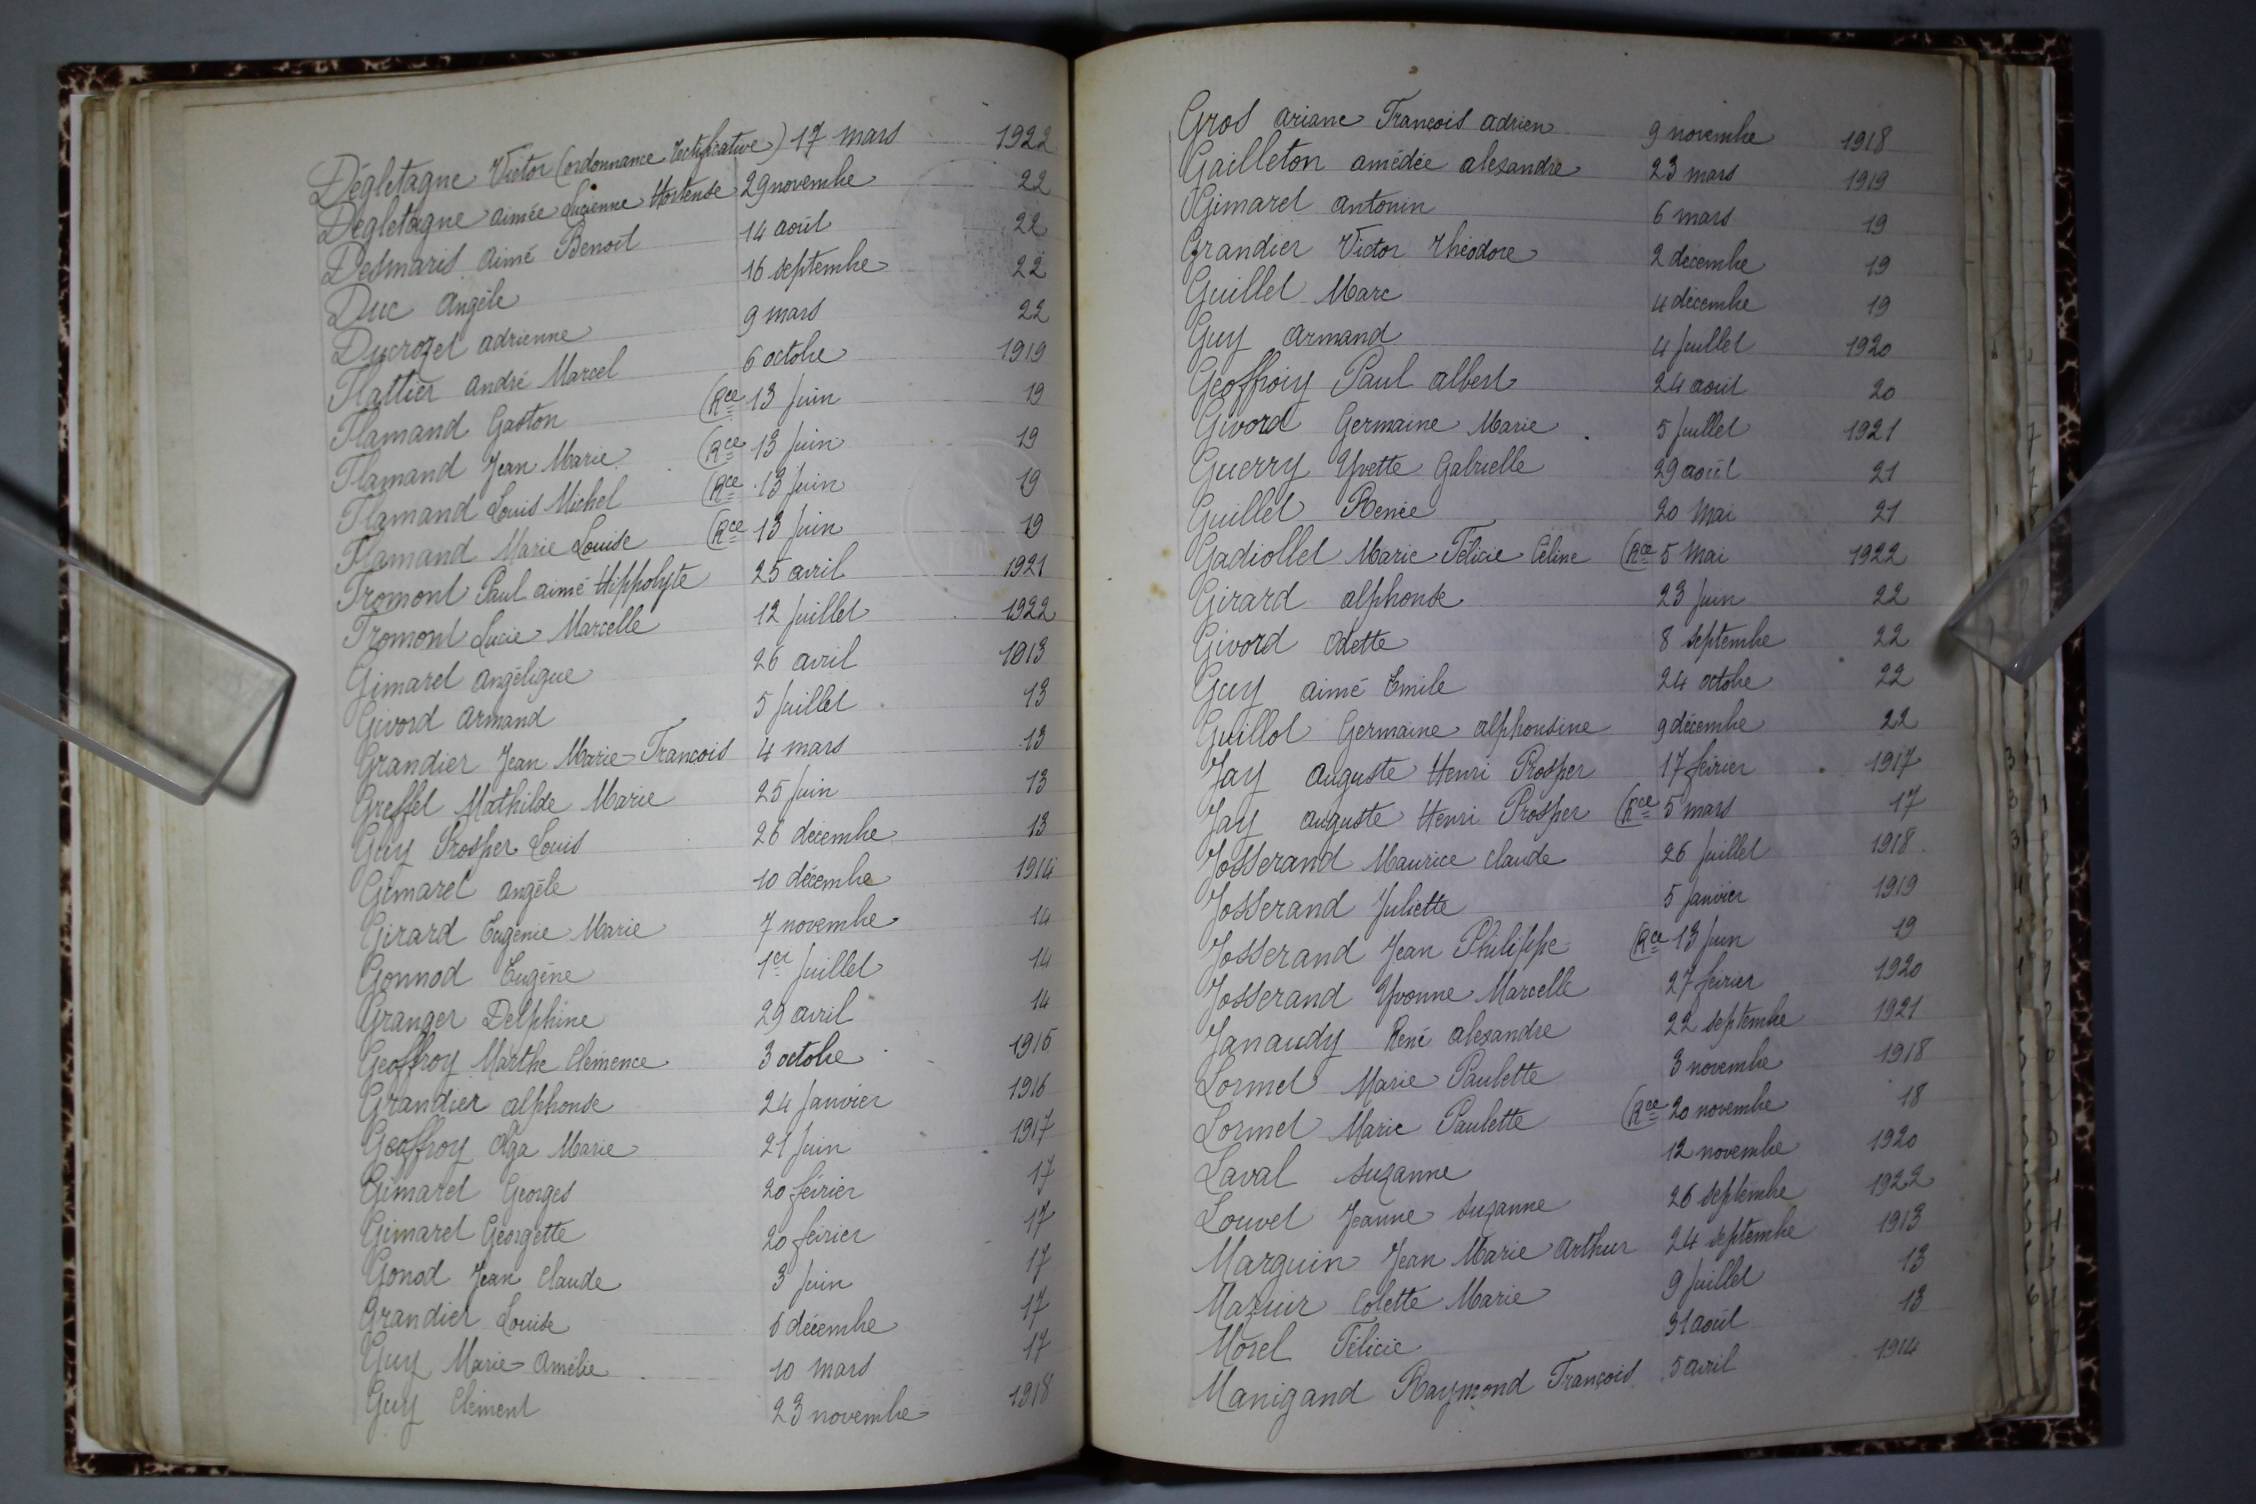 Dégletagne Victor (ordonnance rectificative) 17 mars 1922
Dégletagne aimée Lucienne Hortense 29 novembre 22
Desmaris aimé Benoit 14 août 22
Duc angèle 16 septembre 22
Ducrozet adrienne 9 mars 22
Flattier andré Marcel 6 octobre 1919
Flamand Gaston (Rce 13 Juin 19
Flamand Jean Marie (Rce 13 Juin 19
Flamand Louis Michel (Rce 13 Juin 19
Flamand Marie Louise (Rce 13 Juin 19
Fromont Paul aimé Hippolyte 25 avril 1921
Fromont Lucie Marcelle 12 Juillet 1922
Gimaret angélique 26 avril 1913
Givord armand 5 Juillet 13
Grandier Jean Marie François 4 mars 13
Greffet Mathilde Marie 25 Juin 13
Guy Prosper Louis 26 décembre 13
Gimaret angèle 10 décembre 1914
Girard Eugénie Marie 7 novembre 14
Gonnod Eugène 1er Juillet 14
Granger Delphine 29 avril 14
Geoffroy Marthe Clémence 3 octobre 1915
Grandier alphonse 24 Janvier 1916
Geoffroy Olga Marie 21 Juin 1917
Gimaret Georges 20 février 17
Gimaret Georgette 20 février 17
Gonod Jean Claude 3 Juin 17
Grandier Louise 6 décembre 17
Guy Marie Amélie 10 mars 17
Guy Clément 23 novembre 1918
Gros ariane François adrien 9 novembre 1918
Gailleton amédée alexandre 23 mars 1919
Gimaret antonin 6 mars 19
Grandier Victor Théodore 2 décembre 19
Guillet Marc 4 décembre 19
Guy armand 4 Juillet 1920
Geoffroiy Paul albert 24 août 20
Givord Germaine Marie 5 Juillet 1921
Guerry Yvette Gabrielle 29 août 21
Guillet Renée 20 Mai 21
Gadiollet Marie Félicie Céline (Rce 5 Mai 1922
Girard alphonse 23 Juin 22
Givord Odette 8 septembre 22
Guy aimé Emile 24 octobre 22
Guillot Germaine alphonsine 9 décembre 22
Jay auguste Henri Prosper 17 février 1917
Jay auguste Henri Prosper (Rce 5 mars 17
Josserand Maurice Claude 26 Juillet 1918
Josserand Juliette 5 Janvier 1919
Josserand Jean Philippe (Rce 13 Juin 19
Josserand Yvonne Marcelle 27 février 1920
Janaudy René alexandre 22 septembre 1921
Lormet Marie Paulette 3 novembre 1918
Lormet Marie Paulette (Rce 20 novembre 18
Laval Suzanne 12 novembre 1920
Louvet Jeanne Suzanne 26 septembre 1922
Marguin Jean Marie Arthur 24 septembre 1913
Mazuir Colette Marie 9 Juillet 13
Morel Félicie 31 août 13
Manigand Raymond François 5 avril 1914